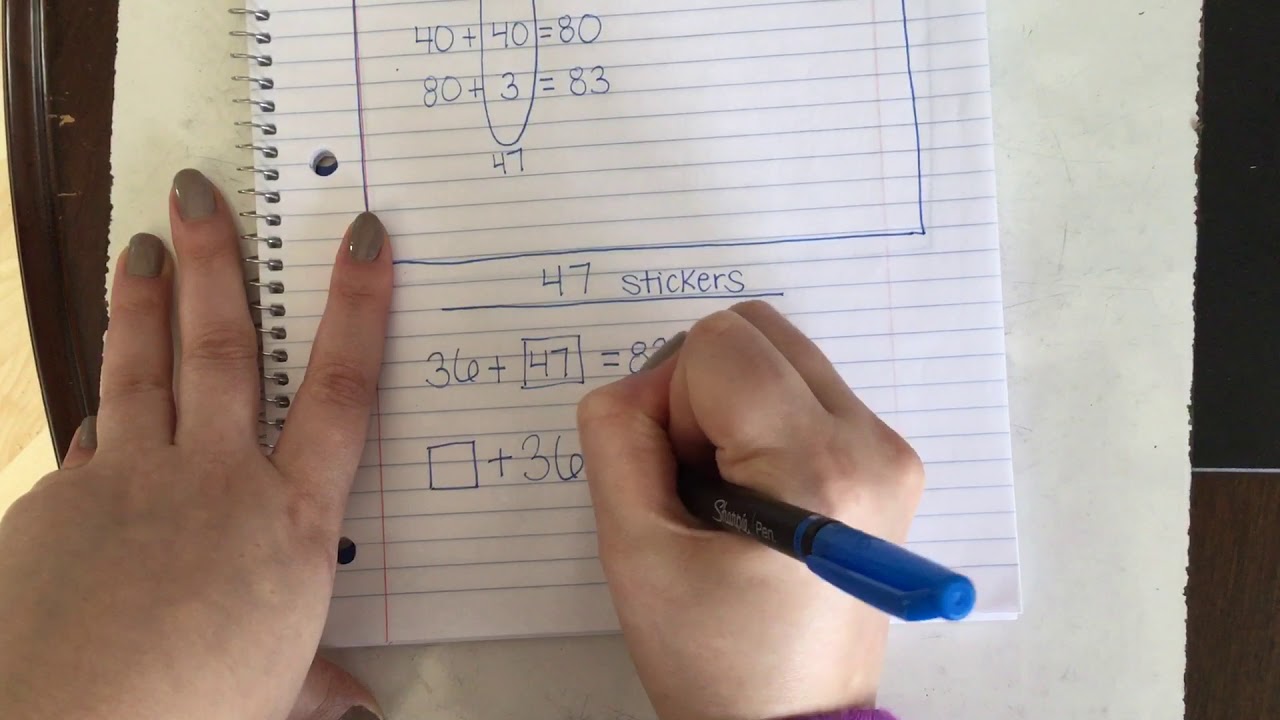 40 + 40 = 80
80 + 3 = 83
47
47 stickers
36 + 47 = 8
+ 36
Sharpie Pen